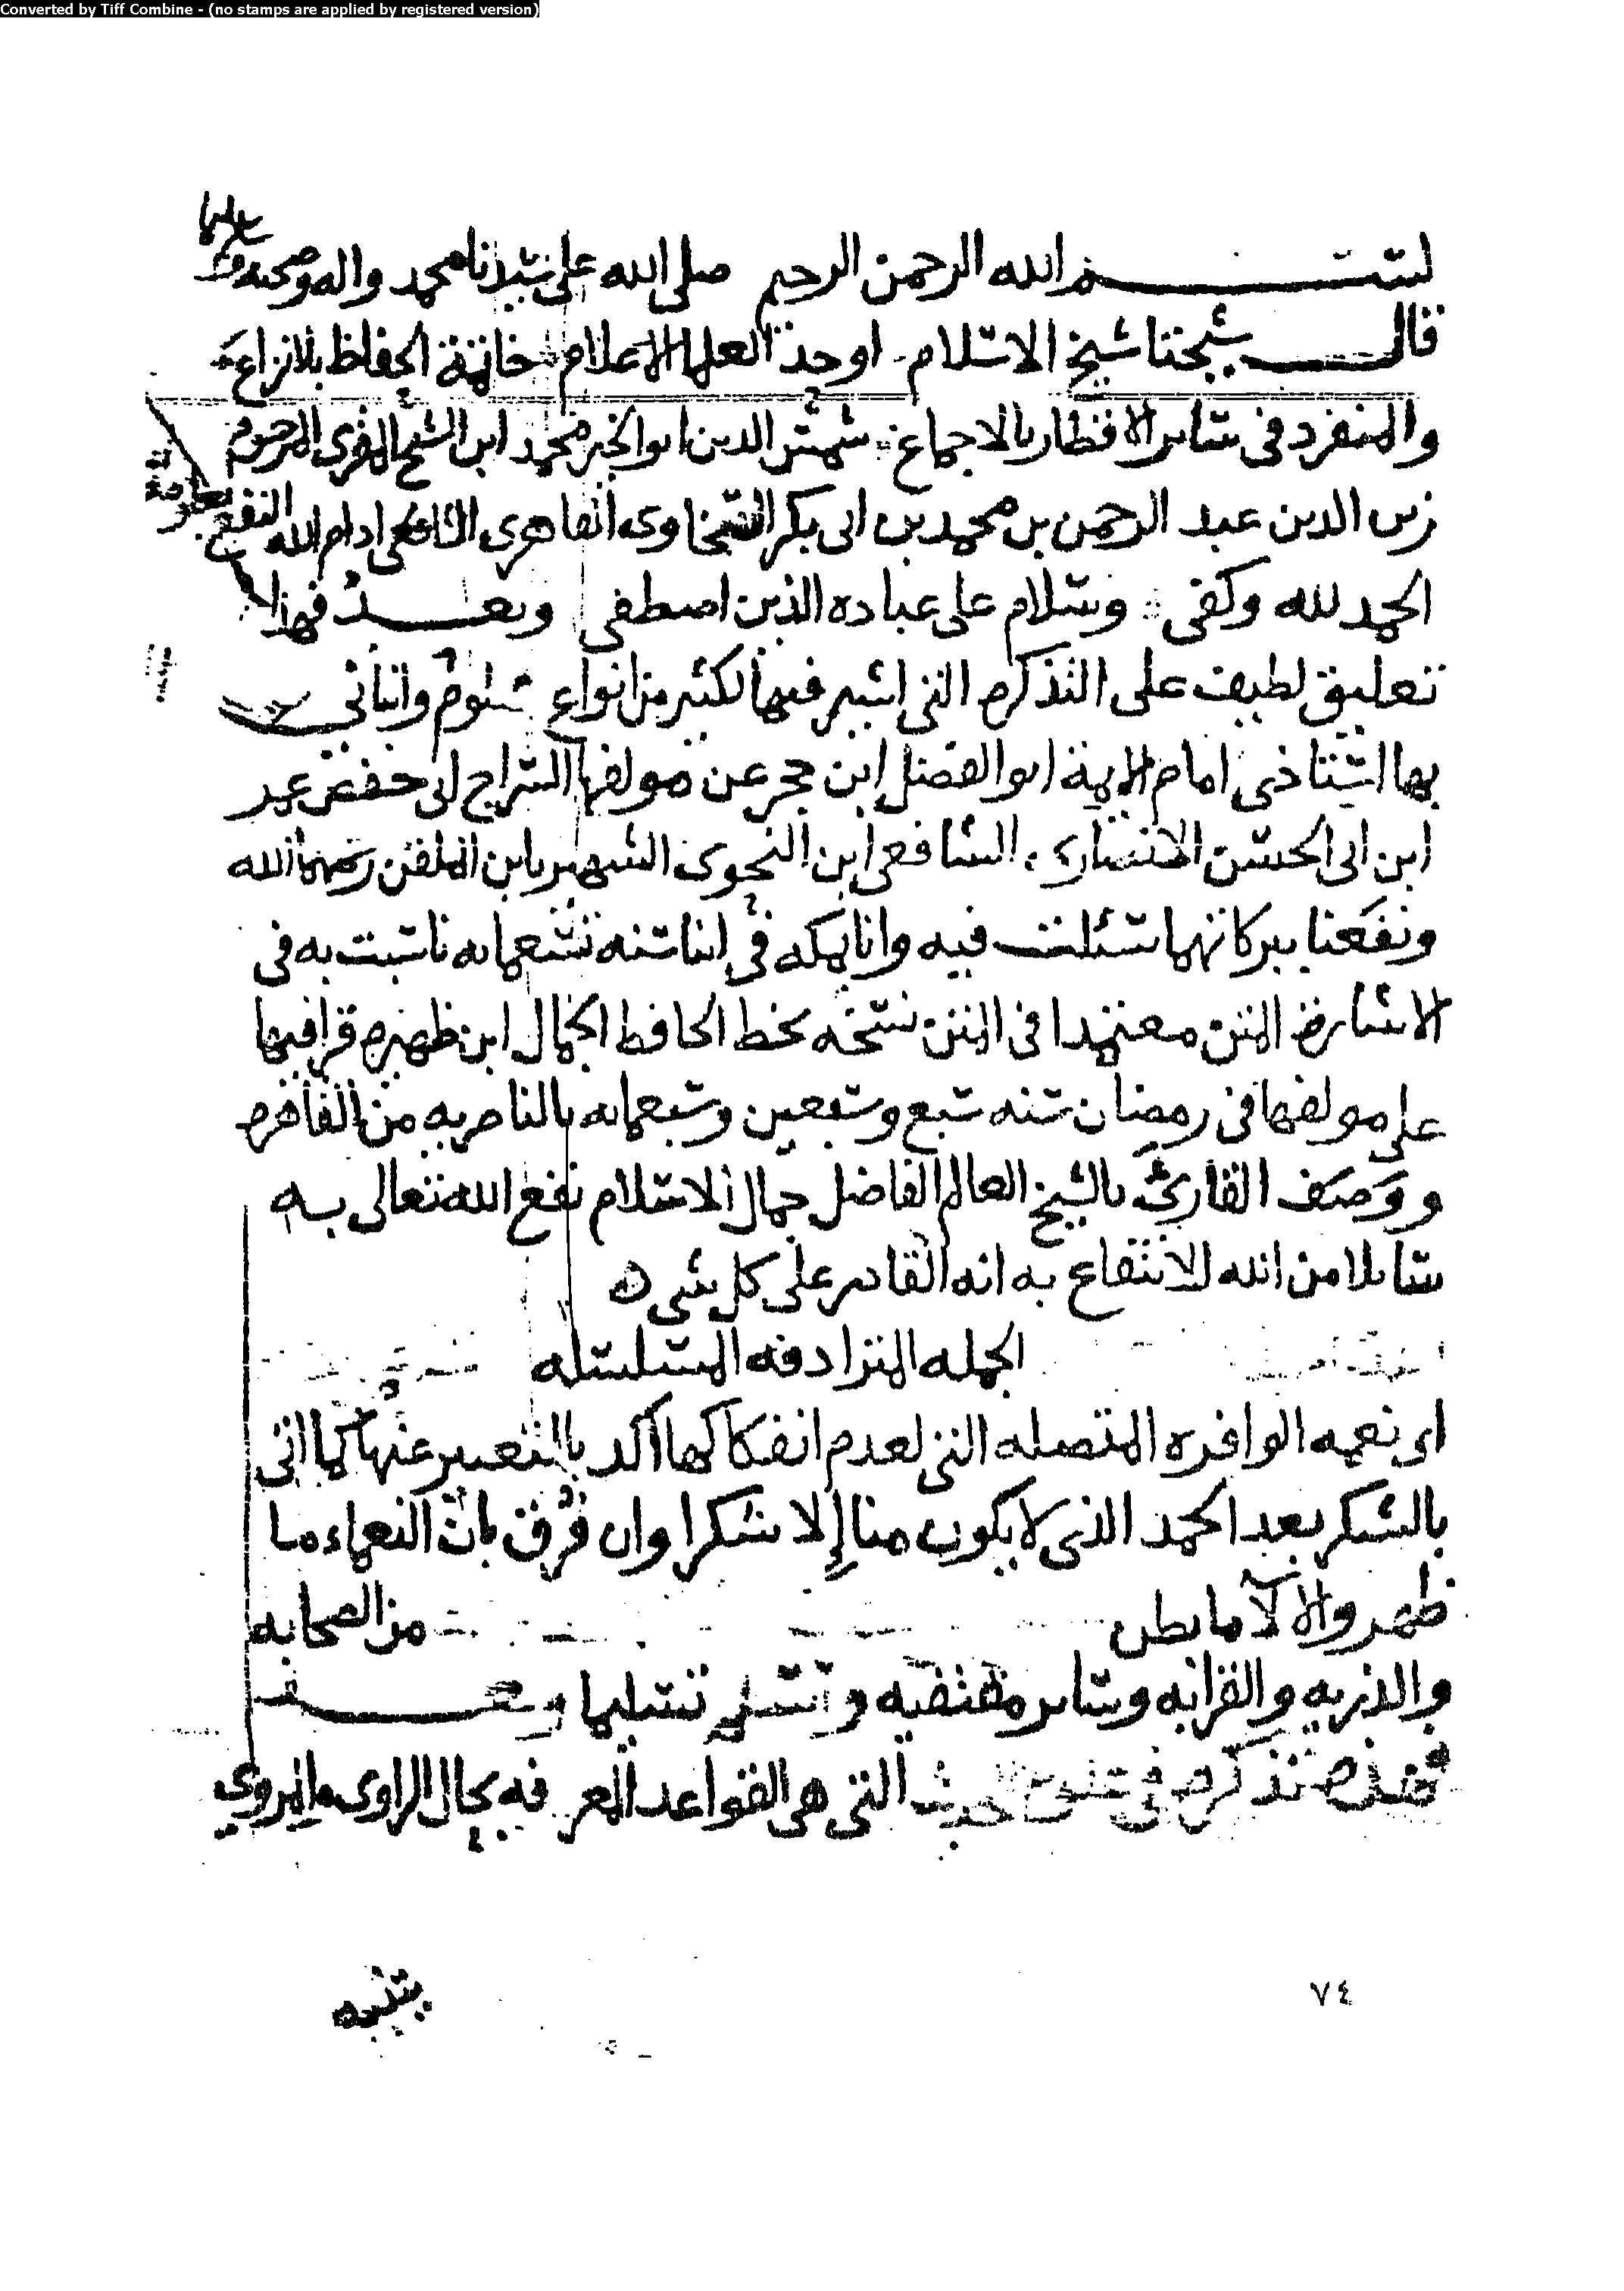 Converted by Tiff Combine - (no stamps are applied by registered version)
بسم الله الرحمن الرحيم صلى الله على سيدنا محمد واله وصحبه
قال شيخنا شيخ الاسلام اوحد العلما الاعلام خاتمة الحفاظ بلا نزاع
والمنفرد فى ساير الاقطار بالاجماع شمس الدين ابو الخير محمد ابن الشيخ المقرى المرحوم
زين الدين عبد الرحمن بن محمد بن ابى بكر السخاوى القاهرى الشافعى ادام الله النفع
الحمد لله وكفى وسلام على عباده الذين اصطفى وبعد فهذا
تعليق لطيف على التذكره التى اشير فيها لكثير من انواع علوم وانبانى
بها استاذى امام الايمة ابو الفضل ابن حجر عن مولفها السراج ابى حفص عمر
ابن ابى الحسن الانصارى الشافعى ابن النحوى الشهير بابن الملقن رحمهما الله
ونفعنا ببركاتهما سئلت فيه وانا بمكه فى اثنا سنه تسعمايه ناسبت به فى
الاشاره المتن معتمدا فى المتن نسخه بخط الحافظ الجمال ابن ظهيره قرا فيها
على مولفها فى رمضان سنه سبع وسبعين وسبعمايه بالناصريه من القاهره
ووصف القارئ بالشيخ العالم الفاضل جمال الاسلام نفع الله تعالى به
سايلا من الله الانتفاع به انه القادر على كل شى
الجمله المترادفه المتسلسله
اى نعمه الوافره المتصله التى لعدم انفكاكها اكد بالتعبير عنها كما اتى
بالشكر بعد الحمد الذى لا يكون منا إلا شكرا وان فرق بان النعماء ما
ظهر والالآ ما بطن من الصحابه
والذريه والقرابه وساير مقتفيه وسلم تسليما وبعد
فهذه تذكره فى علوم الحديث التى هى القواعد المعرفه بحال الراوى والمروى
٧٤